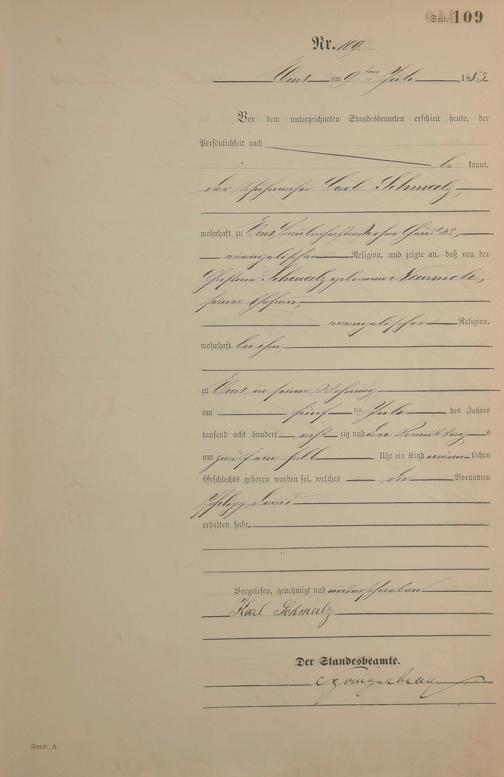 Seite 109
Nr. 109
Ems am 9ten Juli 1883
Vor dem unterzeichneten Standesbeamten erschien heute, der
Persönlichkeit nach
be kannt,
der Carl Schmalz,
wohnhaft zu Ems,
evangelischer Religion, und zeigte an, daß von der
Schmalz geborenen
seiner Ehefrau,
evangelischer Religion,
wohnhaft bei ihm
zu Ems in seiner Wohnung
am fünf ten Juli des Jahres
tausend acht hundert acht zig und drei Vormittags
um Uhr ein Kind männ lichen
Geschlechts geboren worden sei, welches den Vornamen
erhalten habe.
Vorgelesen, genehmigt und unterschrieben
Karl Schmalz
Der Standesbeamte.
Form. A.